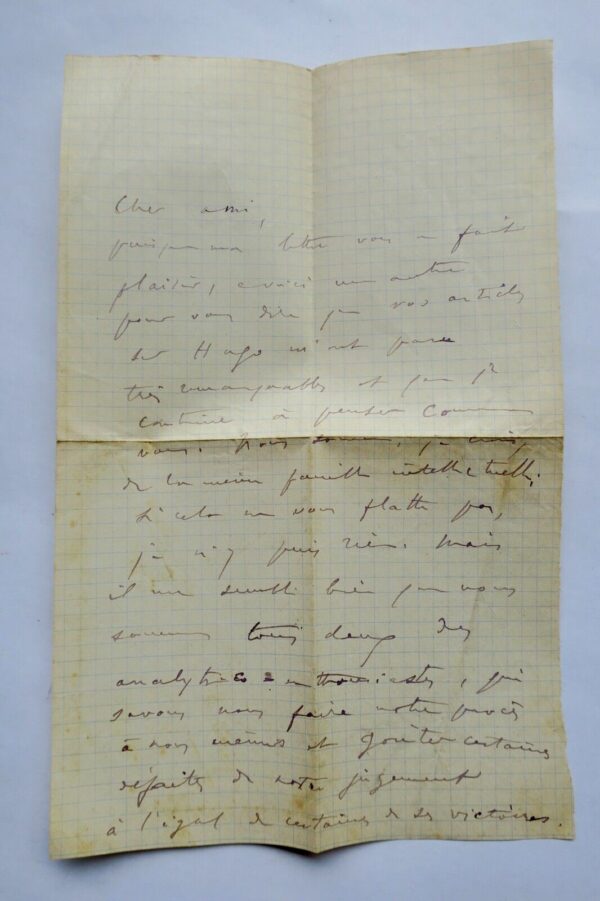 Cher ami,
puisque ma lettre vous a fait
plaisir, en voici une autre
pour vous dire que vos articles
sur Hugo m'ont paru
très remarquables et que je
continue à penser comme
vous. Nous sommes, je crois,
de la même famille intellectuelle,
si cela ne vous flatte pas,
je n'y puis rien. Mais
il me semble bien que nous
sommes tous deux des
analytico-enthousiastes, qui
savons nous faire notre procès
à nous mêmes et goûter certaines
défaites de notre jugement
à l'égal de certaines de ses victoires.